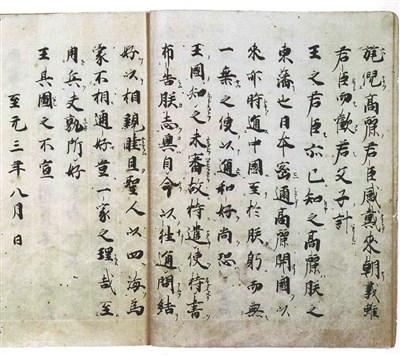 旄倪高麗君臣感戴來朝義雖
君臣而歡若父子計
王之君臣亦已知之高麗朕之
東藩也日本密邇高麗開國以
來亦時通中國至於朕躬而無
一乗之使以通和好尚恐
王國知之未審故特遣使持書
布告朕志冀自今以往通問結
好以相親睦且聖人以四海為
家不相通好豈一家之理哉至
用兵夫孰所好
王其圖之不宣
至元三年八月 日